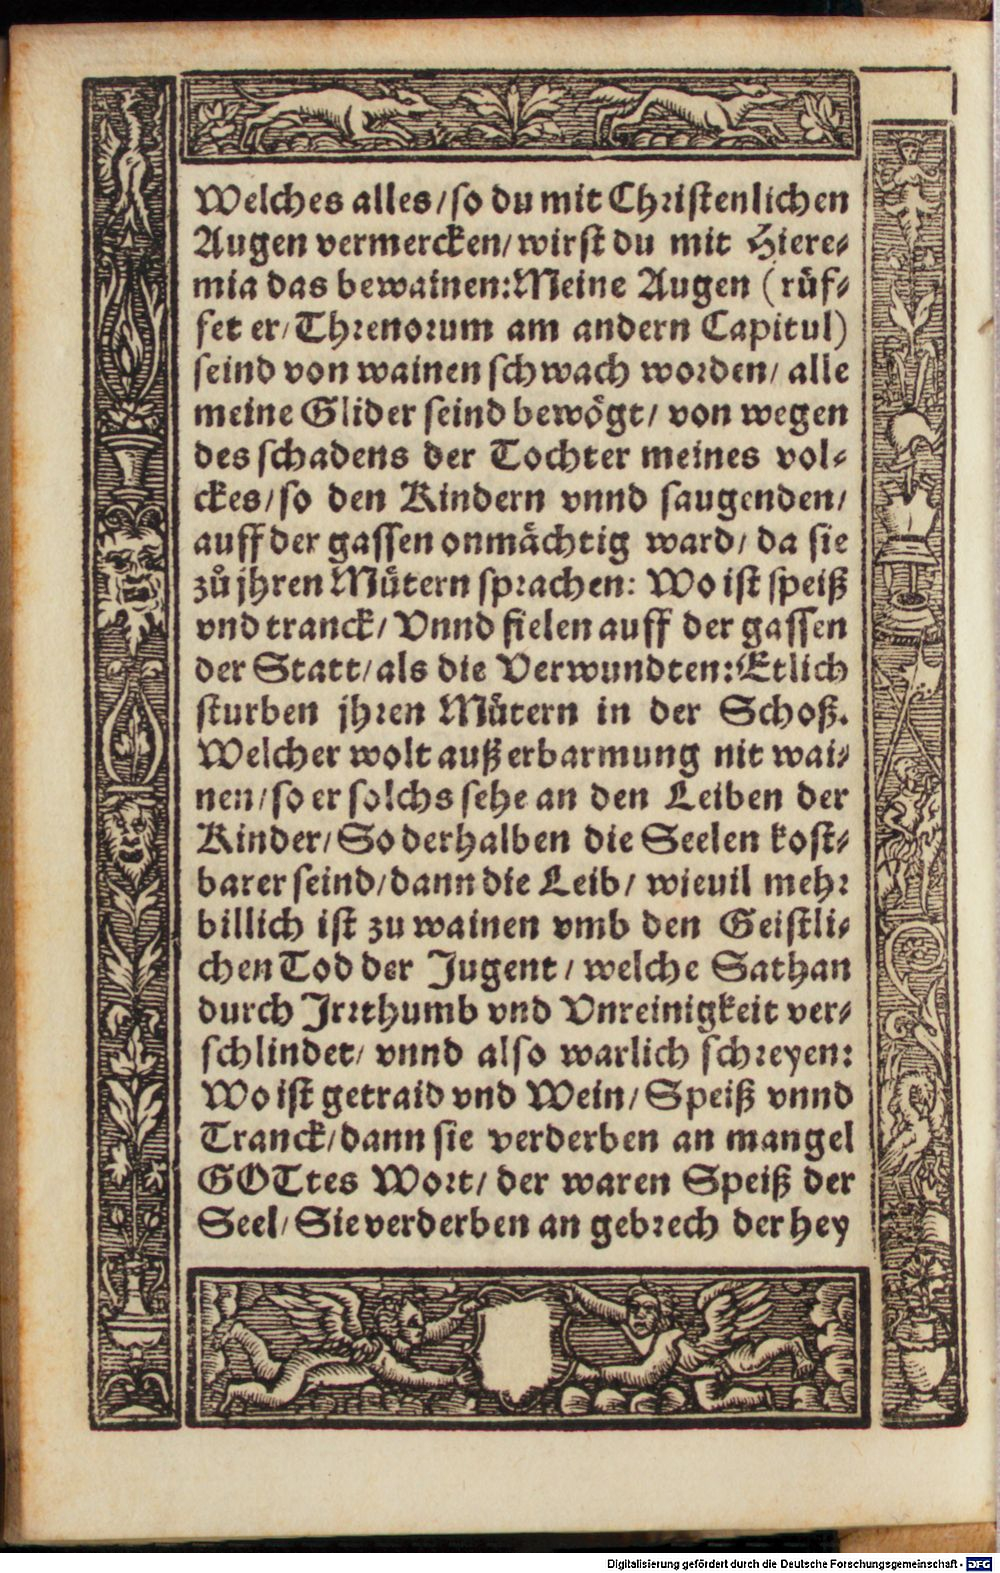 Welches alles/so du mit Christenlichen
Augen vermercken/wirst du mit Hiere-
mia das bewainen:Meine Augen (rüf-
fet er/Threnorum am andern Capitul)
seind von wainen schwach worden/ alle
meine Glider seind bewögt/ von wegen
des schadens der Tochter meines vol-
ckes/so den Kindern vnnd saugenden/
auff der gassen onmächtig ward/ da sie
zů jhren Mütern sprachen: Wo ist speiß
vnd tranck/ Vnnd fielen auff der gassen
der Statt/als die Verwundten:Etlich
sturben jhren Mütern in der Schoß.
Welcher wolt auß erbarmung nit wai-
nen/so er solchs sehe an den Leiben der
Kinder/So derhalben die Seelen kost-
barer seind/dann die Leib/ wievil mehr
billich ist zu wainen vmb den Geistli-
chen Tod der Jugent/welche Sathan
durch Jrrthumb vnd Vnreinigkeit ver-
schlindet/ vnnd also warlich schreyen:
Wo ist getraid vnd Wein/Speiß vnnd
Tranck/dann sie verderben an mangel
GOTtes Wort/ der waren Speiß der
Seel/Sie verderben an gebrech der hey
Digitalisierung gefördert durch die Deutsche Forschungsgemeinschaft - DFG